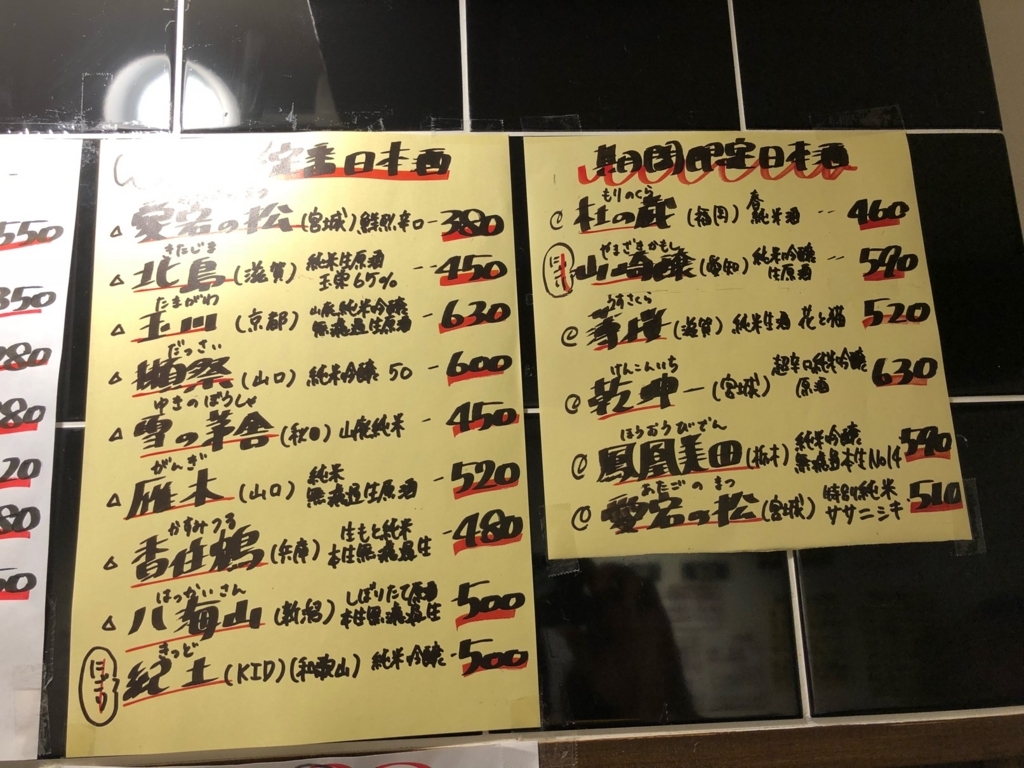 550
350
280
380
520
380
定番日本酒
愛宕の松(宮城)鮮烈辛口-380
きたじま
北島(滋賀)純米生原酒 --450
玉栄65%
たまがわ
玉川(京都)山廃純米吟醸 -630
無濾過生原酒
だっさい
獺祭(山口)純米吟醸50 -600
ゆきのぼうしゃ
雪の茅舎(秋田)山廃純米 -450
がんぎ
雁木(山口)純米 -520
無濾過生原酒
かすみつる
香住鶴(兵庫)生もと純米 -480
本生無濾過生
はっかいさん
八海山(新潟)しぼりたて原酒 500
本生無濾過生
きっど
にごり 紀土(KID)(和歌山)純米吟醸-500
期間限定日本酒
もりのくら
杜の蔵(福岡)春純米酒 --460
やまざきかもし
にごり 山崎醸(愛知)純米吟醸 -590
生原酒
うすさくら
(滋賀)純米生酒 花と猫 520
けんこんいち
乾坤一(宮城)超辛口純米吟醸 630
原酒
ほうおうびでん
鳳凰美田(栃木)純米吟醸 590
無濾過本生No14
あたごのまつ
愛宕の松(宮城)特別純米 510
ササニシキ